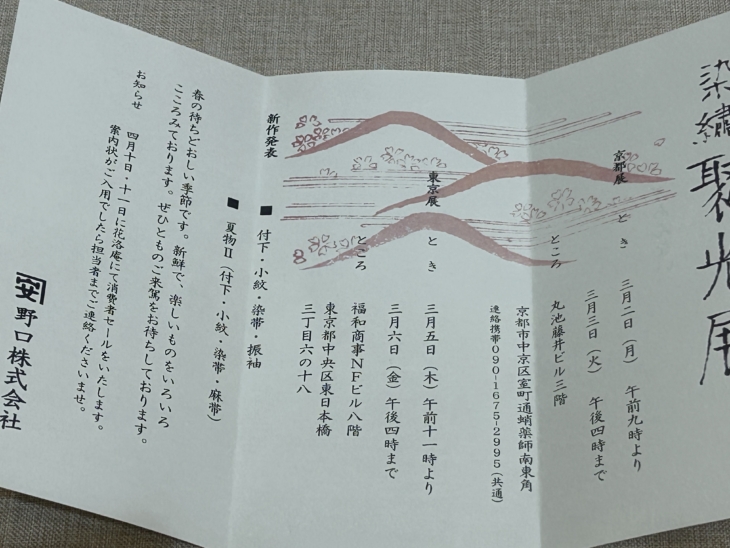 染繍聚光展
京都展
とき　三月二日（月）午前九時より
三月三日（火）午後四時まで
ところ　丸池藤井ビル三階
京都市中京区室町通蛸薬師南東角
連絡携帯090-1675-2995（共通）
東京展
とき　三月五日（木）午前十一時より
三月六日（金）午後四時まで
ところ　福和商事NFビル八階
東京都中央区東日本橋
三丁目六の十八
新作発表
■　付下・小紋・染帯・振袖
■　夏物Ⅱ（付下・小紋・染帯・麻帯）
春の待ちどおしい季節です。新鮮で、楽しいものをいろいろ
こころみております。ぜひとものご来駕をお待ちしております。
お知らせ　四月十日・十一日に花洛庵にて消費者セールをいたします。
案内状がご入用でしたら担当者までご連絡くださいませ。
安 野口株式会社